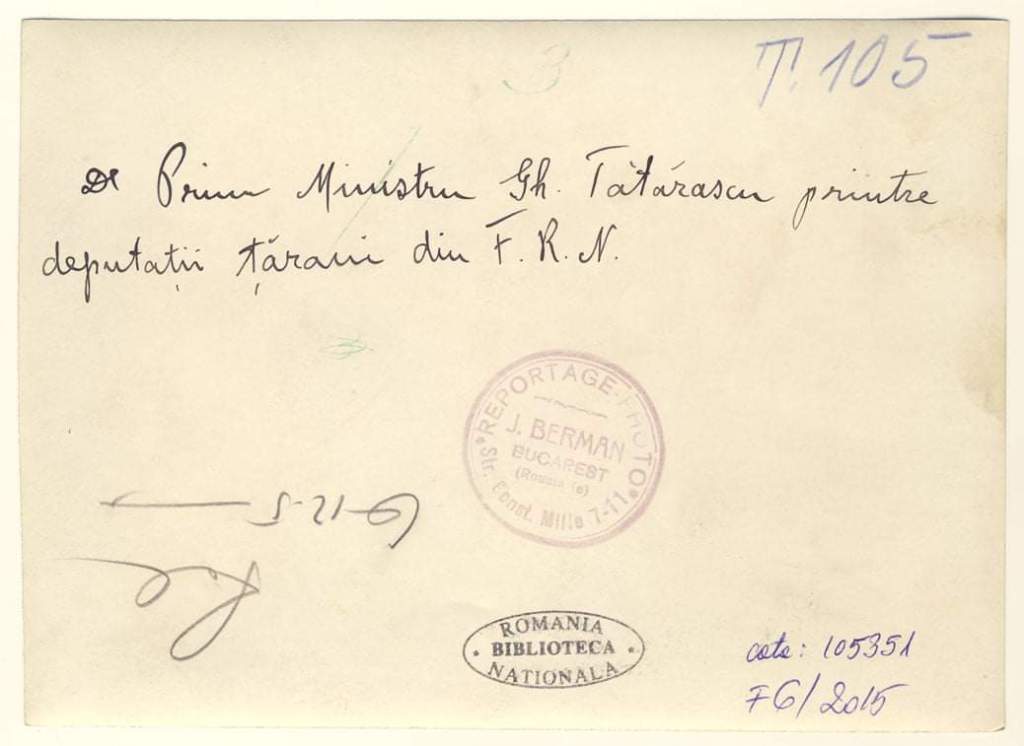 3
T. 105
Dl Prim Ministru Gh. Tătărascu printre
deputații țărani din F. R. N.
REPORTAGE-PHOTO
J. BERMAN
BUCAREST
Str. Const. Mille 7-11
ROMANIA
BIBLIOTECA
NATIONALA
cota: 105351
F6/2015